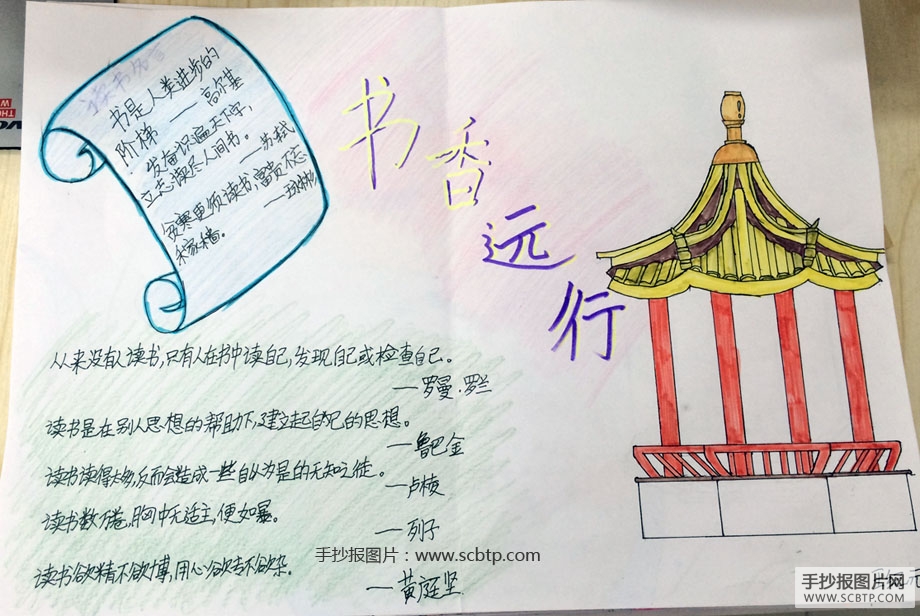 读书名言
书是人类进步的
阶梯 — 高尔基
发奋识遍天下字,
立志读尽人间书。 —苏轼
贫寒更须读书,富贵不忘
稼穑。
书香远行
从来没有人读书,只有人在书中读自己,发现自己或检查自己。
—罗曼.罗兰
读书是在别人思想的帮助下,建立起自己的思想。
—鲁巴金
读书读得太多,反而会造成一些自以为是的无知之徒。
—卢梭
读书数万卷,胸中无适主,便如暴。
—列子
读书欲精不欲博,用心欲专不欲杂。
—黄庭坚
手抄报图片:www.scbtp.com
手抄报图片网
WWW.SCBTP.COM